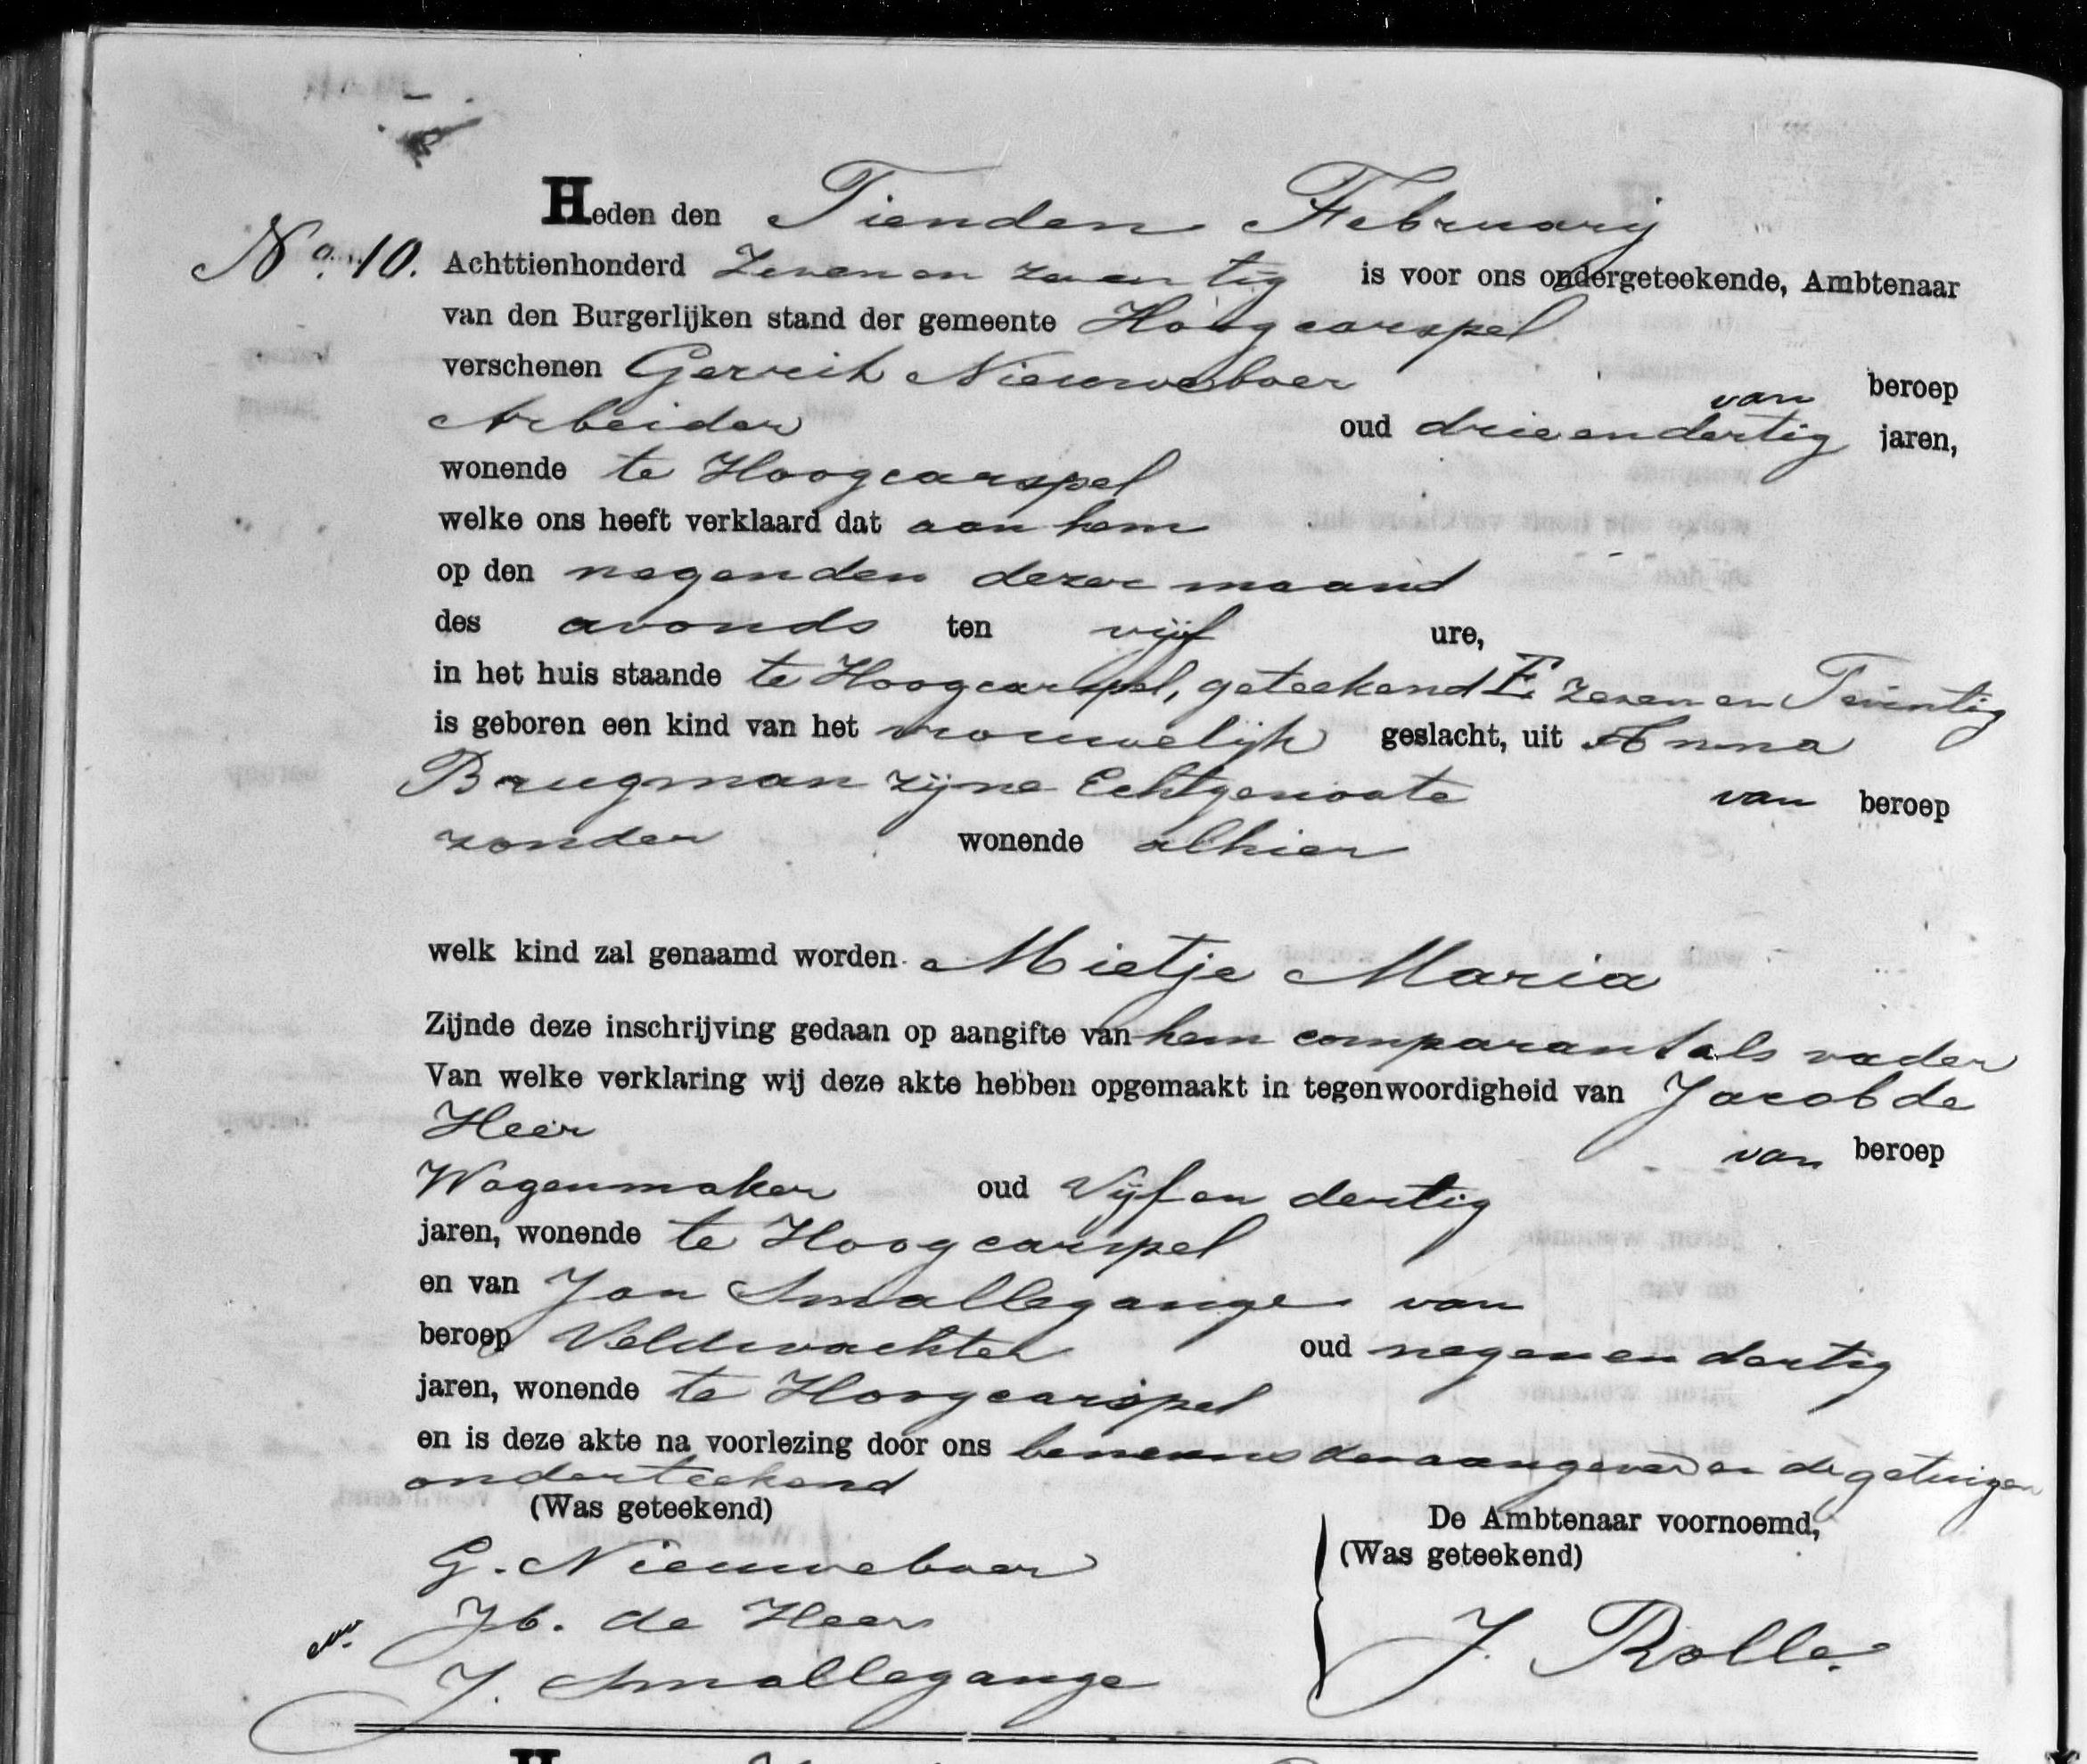 Heden den Tienden Februarij
No. 10. Achttienhonderd Zeven en zeventig is voor ons ondergeteekende, Ambtenaar
van den Burgerlijken stand der gemeente Hoogcarspel
verschenen Gerrit Nieuweboer van beroep
Arbeider oud drie en dertig jaren,
wonende te Hoogcarspel
welke ons heeft verklaard dat aan hem
op den negenden dezer maand
des avonds ten vijf ure,
in het huis staande te Hoogcarspel, geteekend E zeven en Twintig
is geboren een kind van het vrouwelijk geslacht, uit Anna
Brugman zijne Echtgenoote van beroep
zonder wonende alhier
welk kind zal genaamd worden Mietje Maria
Zijnde deze inschrijving gedaan op aangifte van hem comparant als vader
Van welke verklaring wij deze akte hebben opgemaakt in tegenwoordigheid van Jacob de
Heer van beroep
Wagenmaker oud Vijf en dertig
jaren, wonende te Hoogcarspel
en van Jan Smallegange van
beroep Veldwachter oud negen en dertig
jaren, wonende te Hoogcarspel
en is deze akte na voorlezing door ons benevens den aangever en de getuigen
onderteekend
(Was geteekend) De Ambtenaar voornoemd,
(Was geteekend)
G. Nieuweboer
Jb. de Heer
J. Rolle.
J. Smallegange